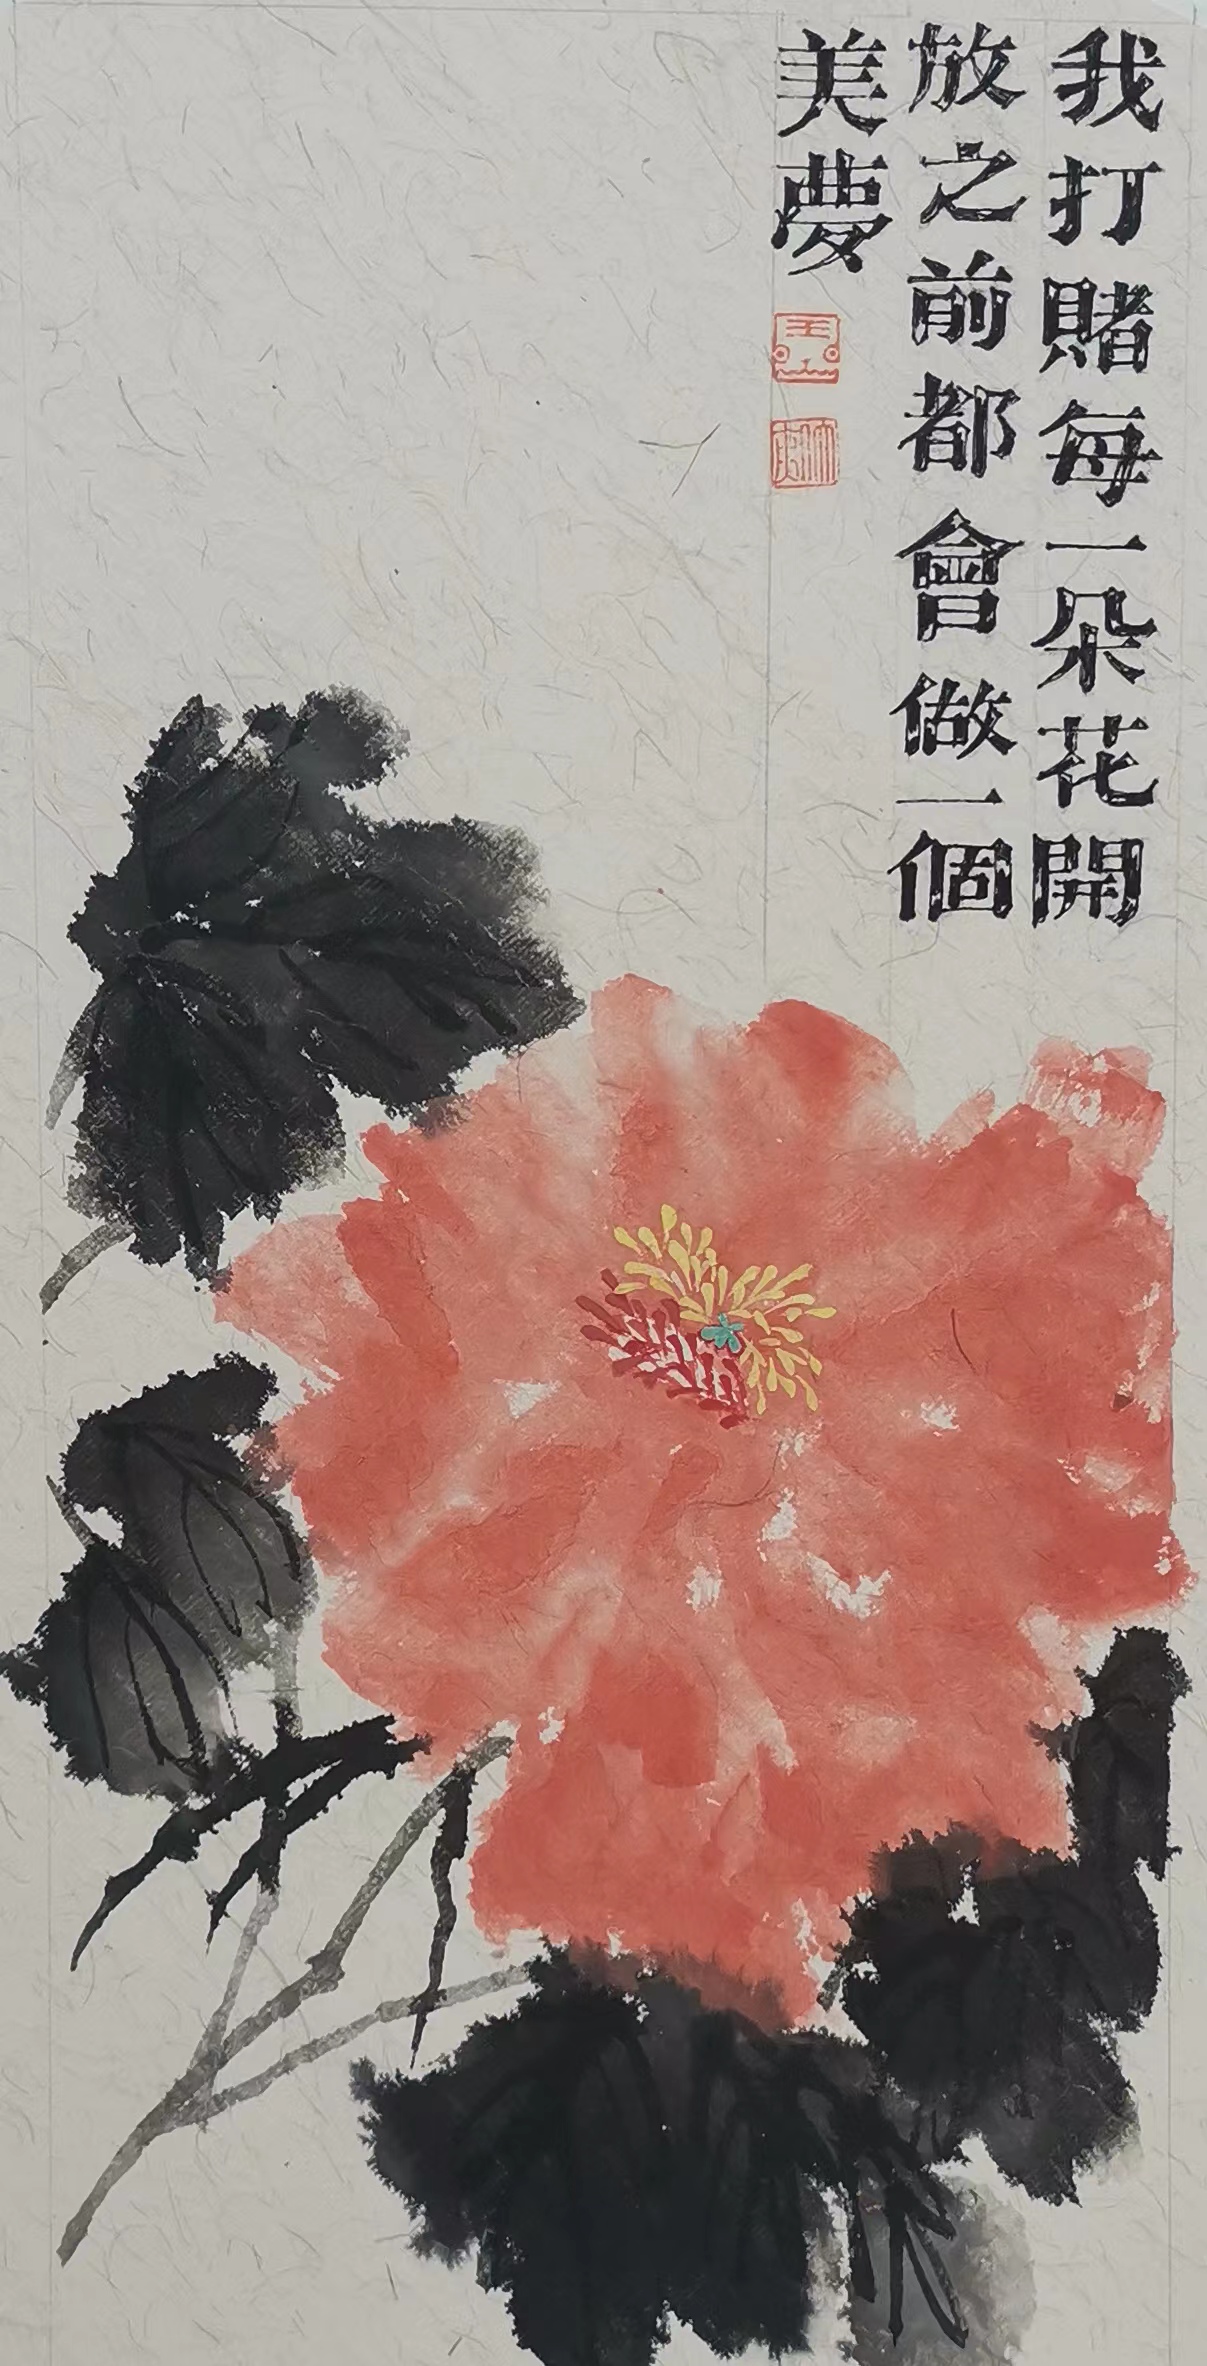 我打賭每一朵花開
放之前都會做一個
美夢